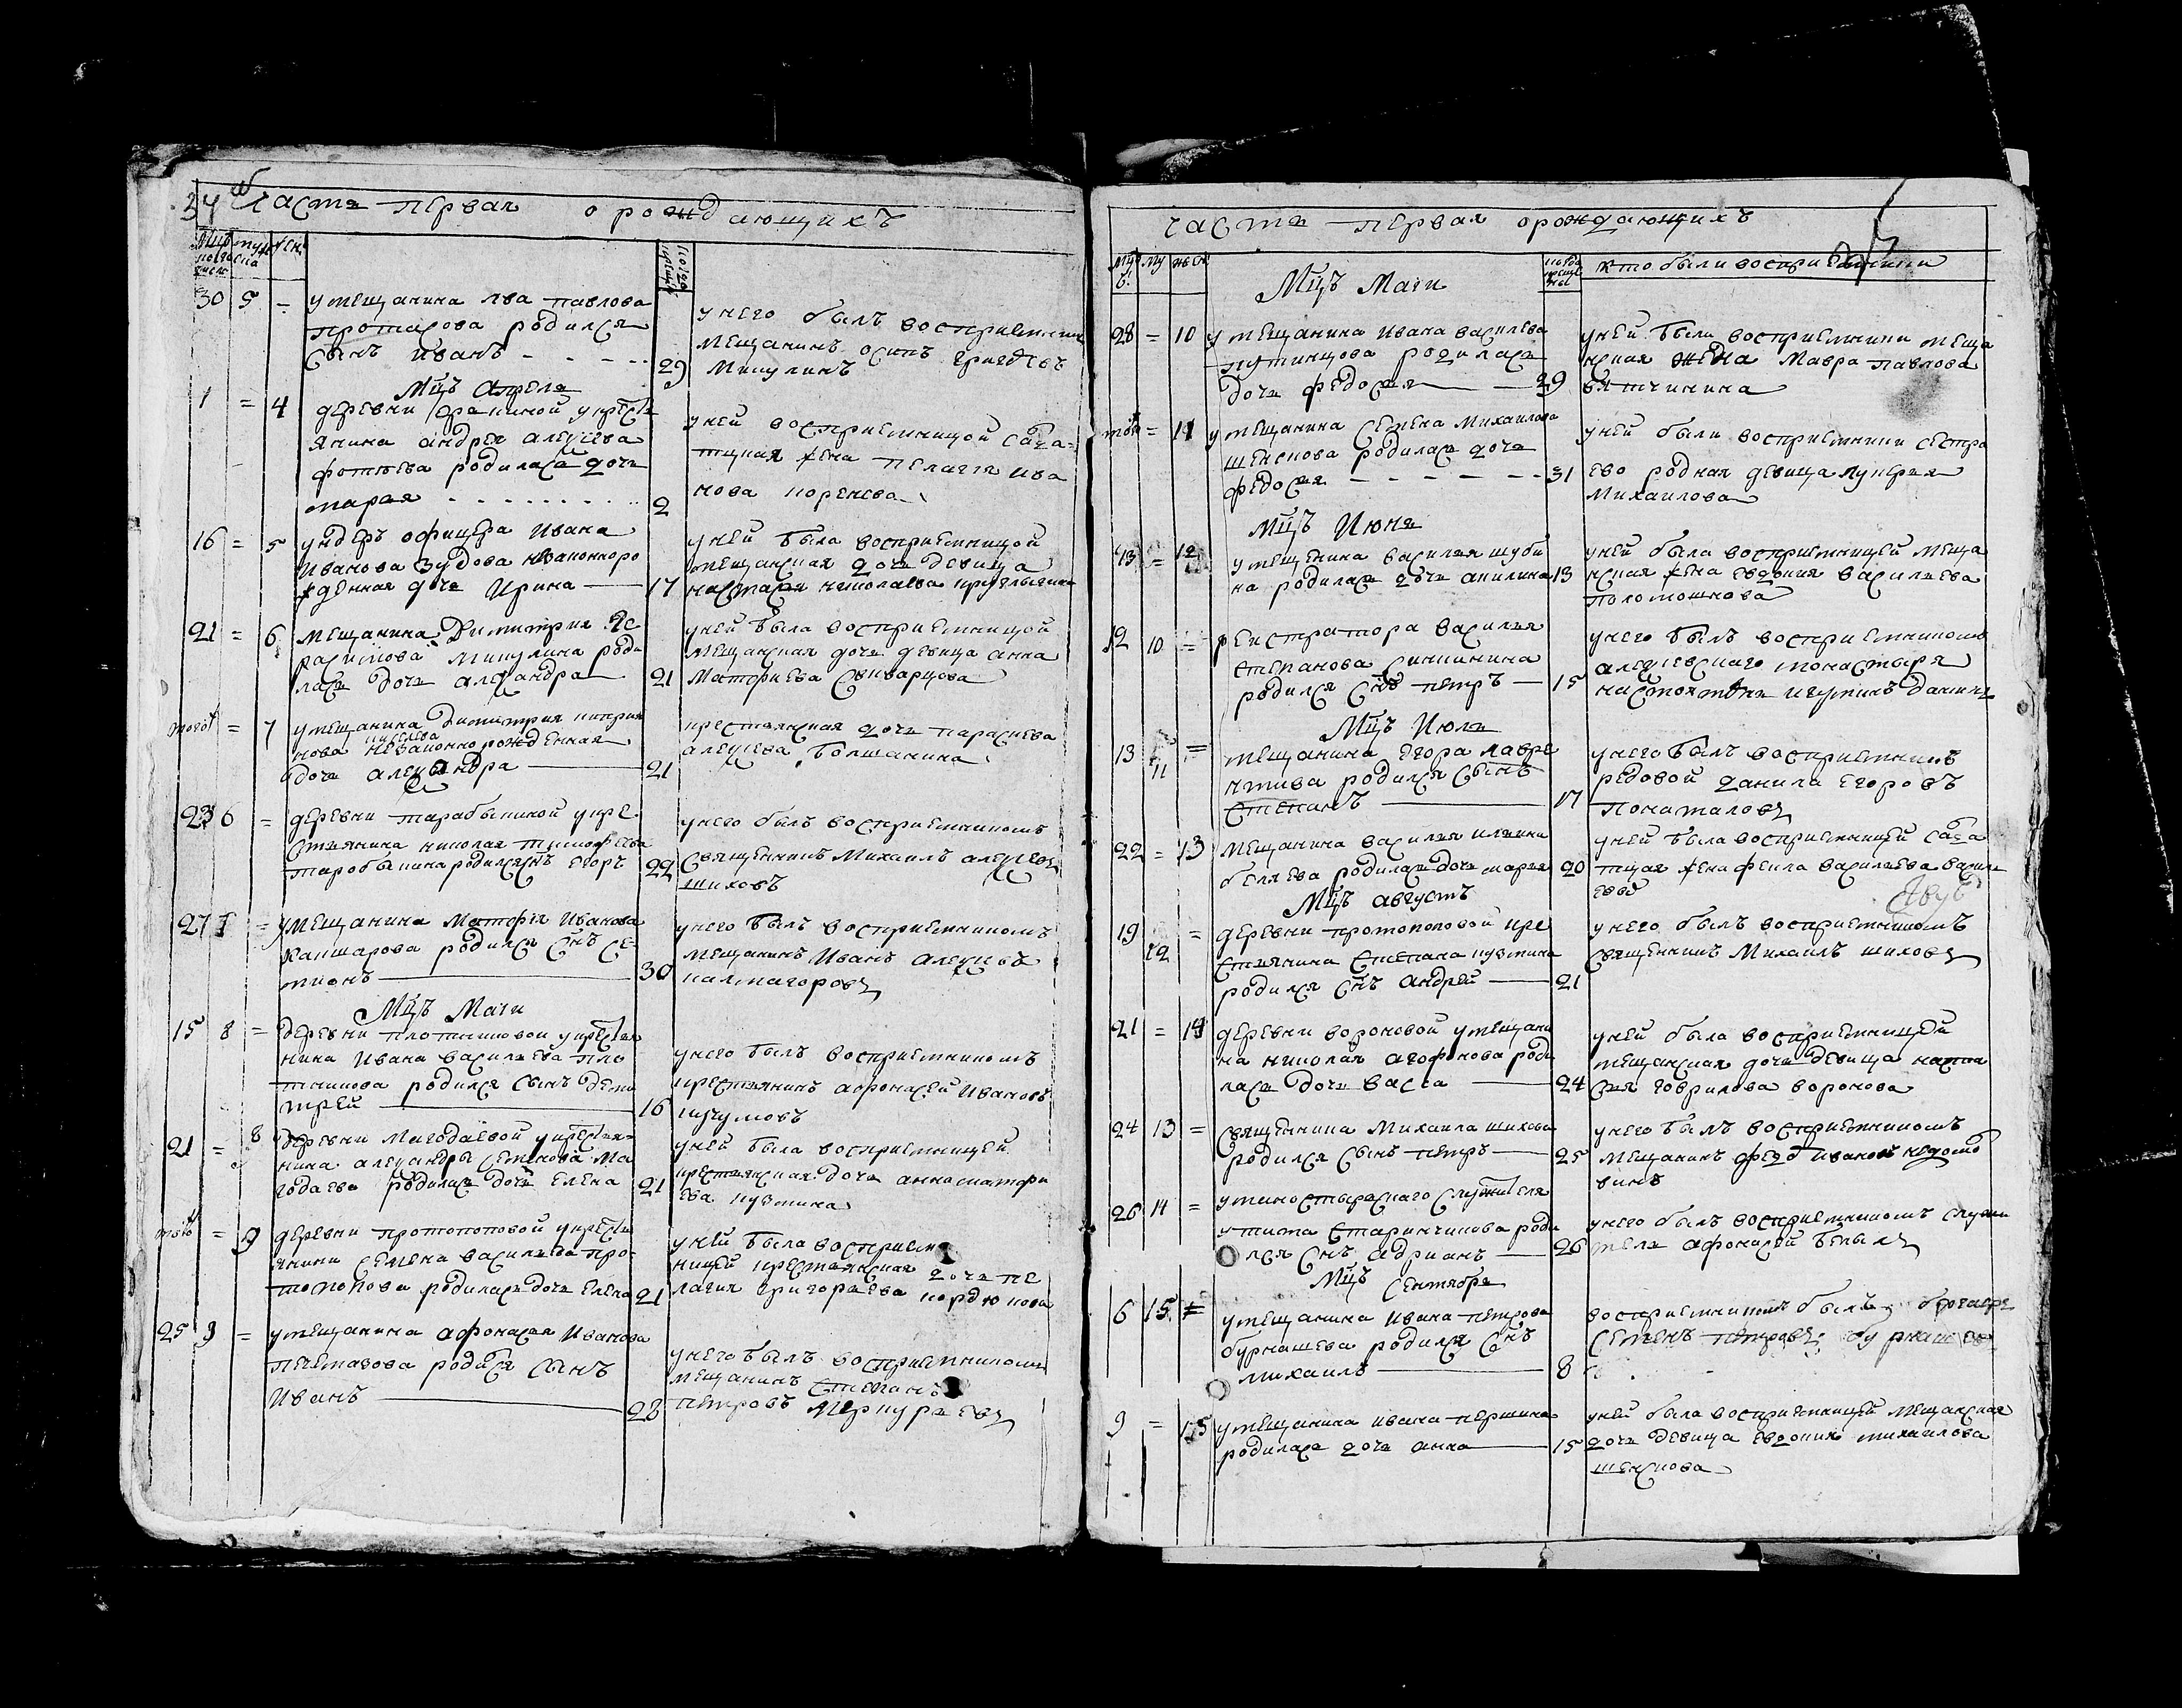 34 об
Часть первая о рождающихъ
30 5 = у мещанина лва павлова
протасова родился
сынъ иванъ 29
у него былъ восприемникъ
мещанинъ осипъ
Микулинъ
Мцъ Апрель
1 = 4 деревни у кресть
янина андрея алеѯеева
фотиева родилась дочь
марья 2
у ней восприемницой салда
тцкая жена пелагея ива
нова коренева
16 = 5 ундеръ офицера Ивана
Иванова Зудова незаконноро
жденная дочь Ирина 17
у ней была восприемницой
мещанская дочь девица
настасья николаева
21 = 6 мещанина Димитрия
Микулина роди
лась дочь алеѯандра 21
у ней была восприемницой
Мещанская дочь девица анна
Матфиева
того = 7 у мещанина Димитрия киприя
нова киселева незаконно рожденная
дочь алеѯандра 21
крестьянская дочь параскева
алеѯеева болшанина
23 6 = деревни тарабыкиной у кре
стьянина николая тимофеева
таробыкина родился снъ егоръ 29
у него былъ восприемникомъ
священникъ Михаилъ алеѯеевъ
шиховъ
27 7 = у мещанина Матфея Иванова
родился снъ се
мионъ 30
у него былъ восприемникомъ
мещанинъ Иванъ алеѯеевъ
калмагоровъ
Мцъ Маии
15 8 = деревни плотниковой у крестья
нина Ивана василева пло
тникова родился сынъ дими
трей 16
у него былъ восприемникомъ
крестьянинъ афонасей Ивановъ
21 = 8 деревни Магодаевой у крестья
нина алеѯандры семенова Ма
годаева родилась дочь елена 21
у ней была восприемницей
крестьянская дочь анна матфи
ева кузмина
тогоже = 9 деревни протопоповой у кресть
янина семена василева про
топопова родилась дочь елена 21
у ней была восприем
ницей крестьянская дочь пе
лагия григорьева кордюкова
25 9 = у мещанина афонасья Иванова
родился сынъ
Иванъ 28
у него былъ восприемникомъ
мещанинъ Степанъ
петровъ Меркурьевъ
часть первая о рождающихъ
кто были восприемники
Мцъ Маии
28 = 10 у мещанина Ивана василева
путинцова родилась
дочь федосья 29
у ней были восприемники меща
нская жена Мавра павлова
вятчинина
тогож = 11 у мещанина семена Михаилова
шенскова родилась дочь
федосья 31
у ней были восприемники сестра
ево родная девица лукерья
Михаилова
Мцъ Июнь
13 = 12 у мещанина василья шуби
на родилась дочь акилина 13
у ней была восприемницей меща
нская жена евдокия василева
поломошнова
12 10 = регистратора василья
степанова родился снъ петръ 15
у него былъ восприемникомъ
алеѯеевскаго монастыря
настоятель игуминъ Даниилъ
Мцъ Июль
13 11 = мещанина егора лавре
нтива родился сынъ
степанъ 17
у него былъ восприемникъ
редовой данила егоровъ
22 = 13 мещанина василья илиина
беляева родилась дочь марья 20
у ней была восприемницей салда
тцкая жена фекла василева
Мцъ августъ
19 12 = деревни протопоповой кре
стьянина степана кузмина
родился снъ андрей 21
у него былъ восприемникомъ
священникъ Михаилъ шиховъ
21 = 14 деревни вороновой у мещани
на николая агофонова роди
лась дочь васса 24
у ней была восприемницей
мещанская дочь девица наста
сья гаврилова воронова
24 13 = священника Михаила шихова
родился сынъ петръ 25
у него былъ восприемникомъ
мещанинъ федоръ ивановъ
26 14 = у манастырскаго служителя
роди
лся снъ адрианъ 26
у него былъ восприемникомъ служи
тель афонасей белыхъ
Мцъ Сентябрь
6 15 = у мещанина Ивана петрова
бурнашева родился снъ
михаилъ 8
восприемникомъ былъ
семенъ петровъ бурнашев
9 = 15 у мещанина ивана першина
родилась дочь анна 15
у ней была восприемницей мещанская
дочь девица евдокия михаилова
шенскова